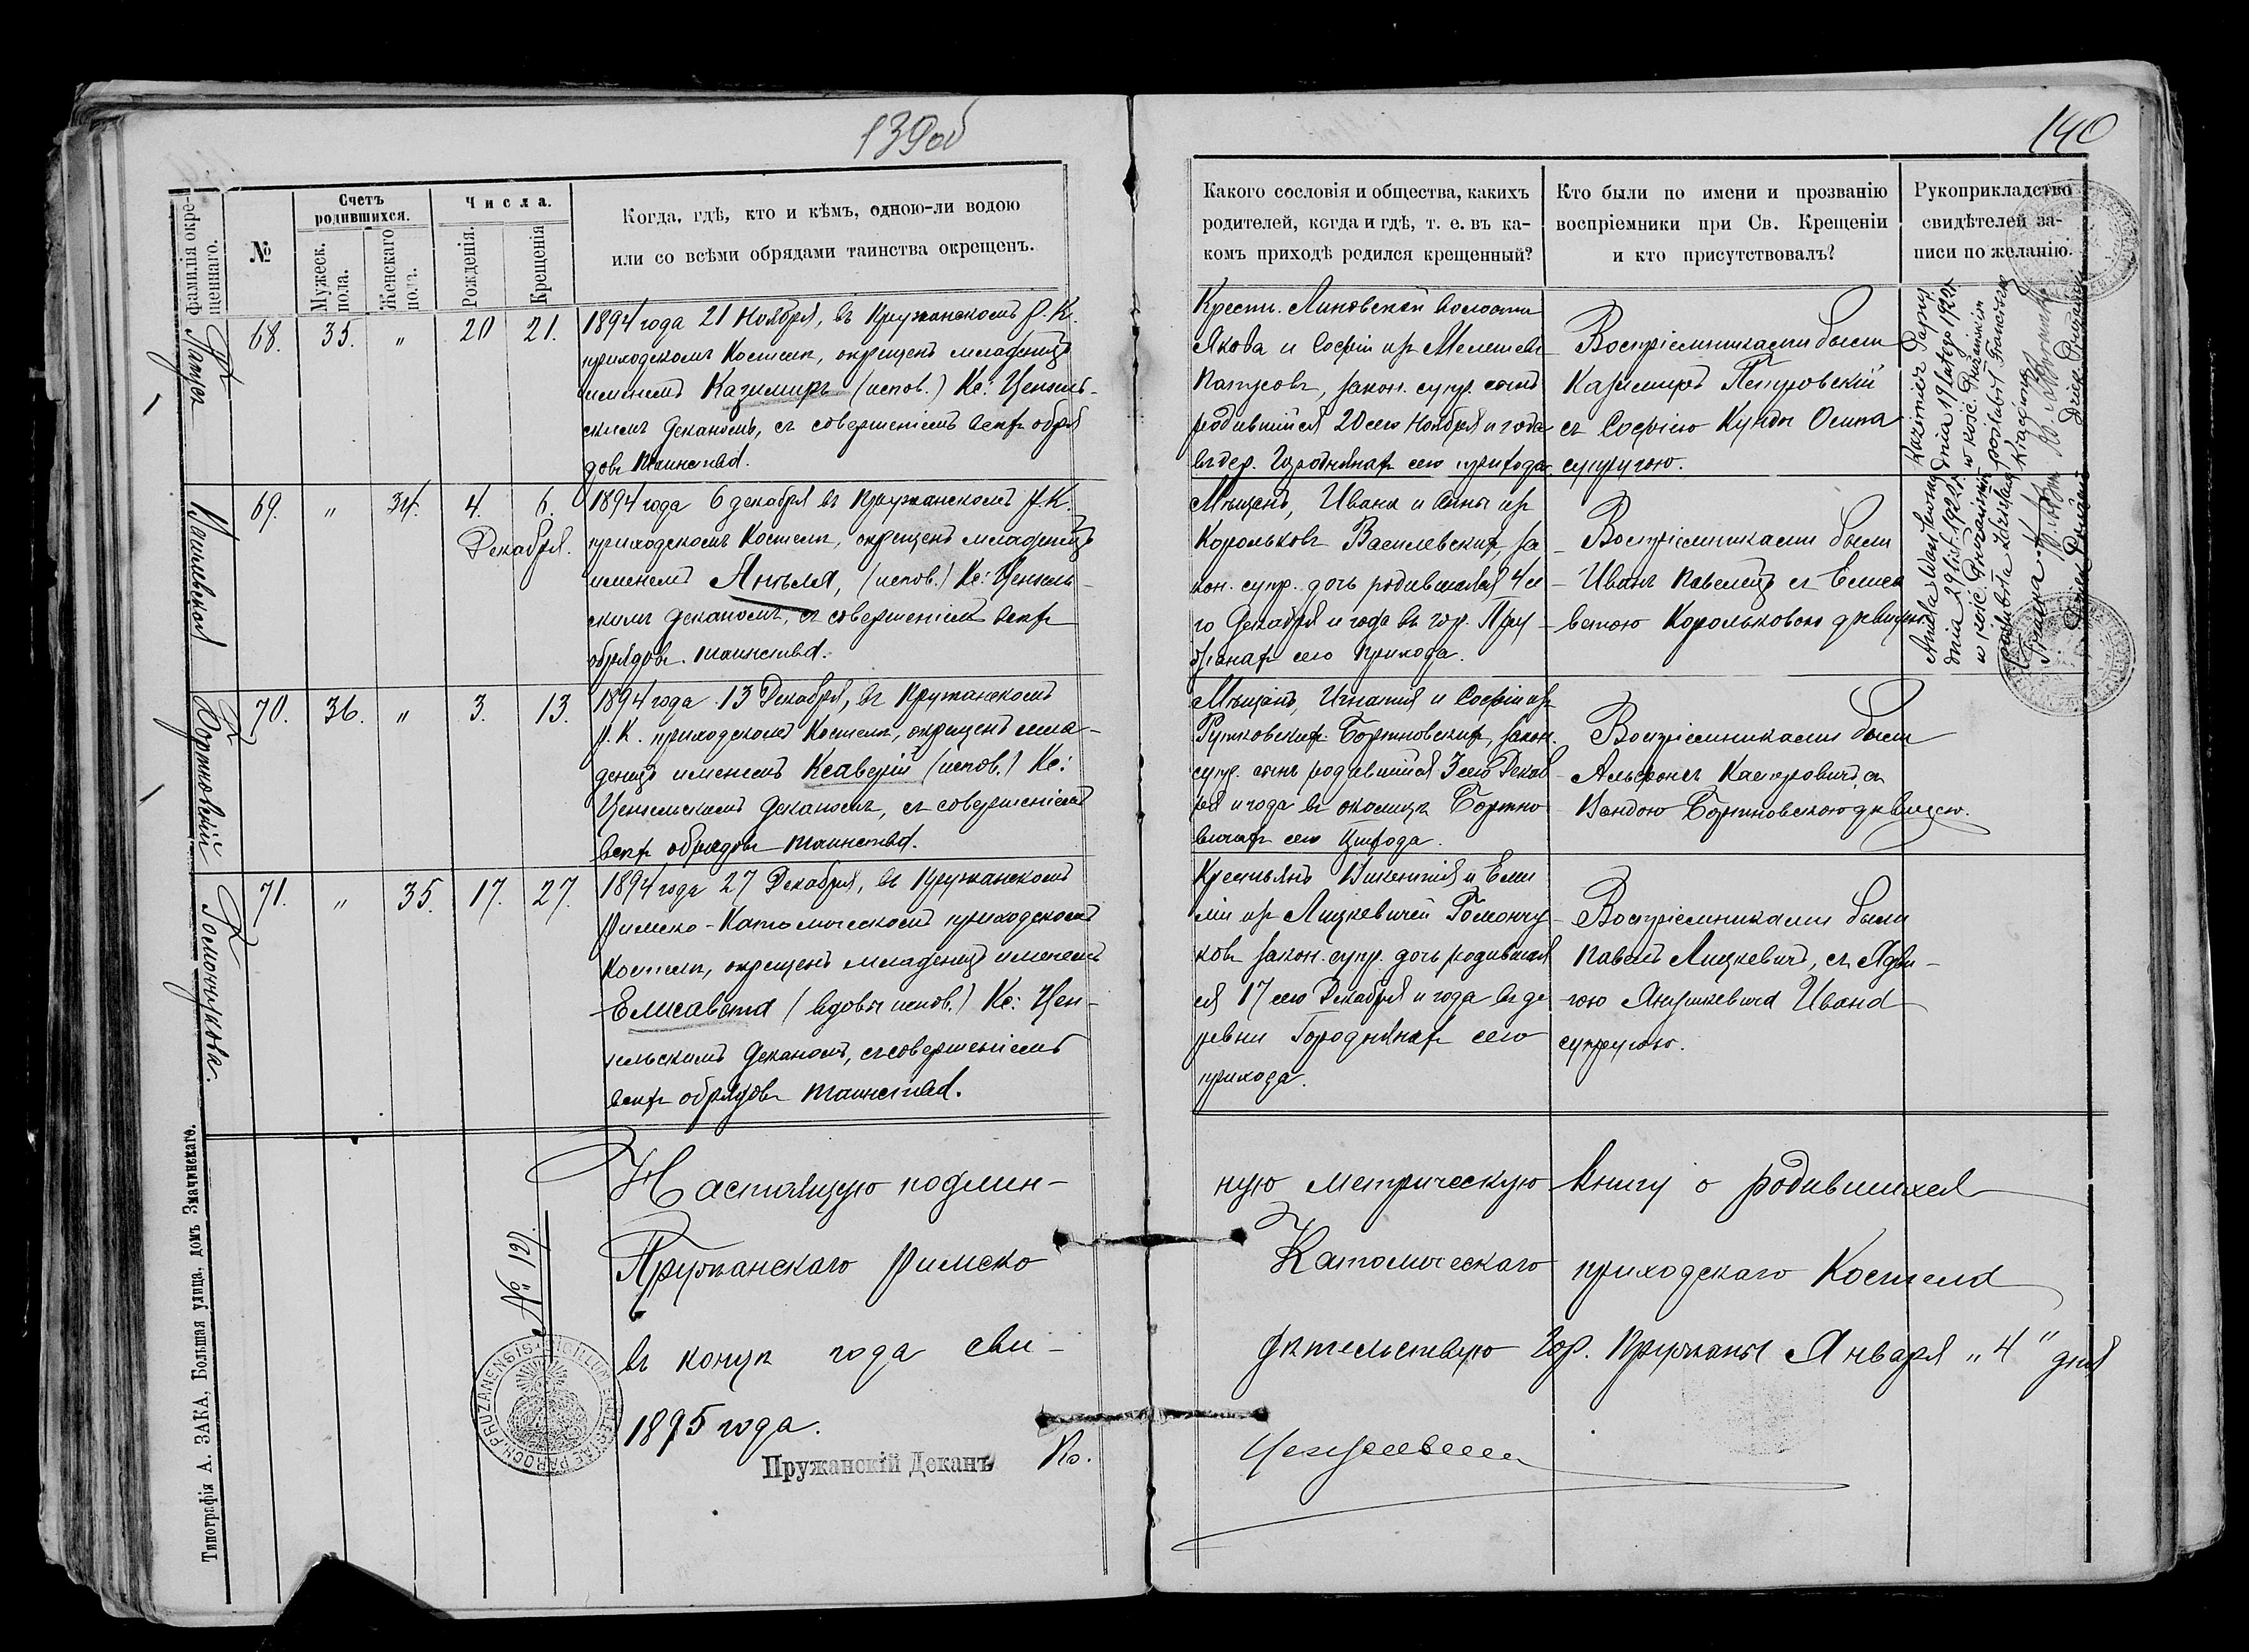 139об
140
Фамилія окре-
щеннаго.
№
Счетъ
родившихся.
Мужеск.
пола.
Женскаго
пола.
Числа.
Рожденія.
Крещенія
Когда, гдѣ, кто и кѣмъ, одною-ли водою
или со всѣми обрядами таинства окрещенъ.
Какого сословія и общества, какихъ
родителей, когда и гдѣ, т. е. въ ка-
комъ приходѣ родился крещенный?
Кто были по имени и прозванію
воспріемники при Св. Крещеніи
и кто присутствовалъ?
Рукоприкладство
свидѣтелей за-
писи по желанію.
68.
35.
"
20
21.
1894 года 21 Ноября, въ Пружанскомъ Р. К.
приходскомъ Костелѣ, окрещенъ младенецъ
именемъ Казимиръ (испов.) Кс:
скимъ Деканомъ, съ совершеніемъ всѣхъ обря
довъ таинства.
Крестн. Линовской волости
Якова и Софіи изъ
закон. супр. сынъ
родившійся 20 сего Ноября и года
въ дер. Городнянахъ сего прихода.
Воспріемниками были
Казимиръ Петровскій
съ Софіею Кунды Осипа
супругою.
69.
"
34.
4.
6.
Декабря.
1894 года 6 декабря въ Пружанскомъ Р. К.
приходскомъ Костелѣ, окрещенъ младенецъ
именемъ Ангеля, (испов.) Кс:
скимъ деканомъ, съ совершеніемъ всѣхъ
обрядовъ таинства.
Мѣщанъ, Ивана и Анны изъ
Корольковъ Василевскихъ, за
кон. супр. дочь родившаяся 4 се
го Декабря и года въ гор. Пру
жанахъ сего прихода.
Воспріемниками были
Иванъ Павелецъ съ Елиса
ветою Корольковою дѣвицею.
Бортновскій
70.
36.
"
3.
13.
1894 года 13 Декабря, въ Пружанскомъ
Р. К. приходскомъ Костелѣ, окрещенъ мла-
денецъ именемъ Ксаверій (испов.) Кс:
Деканомъ, съ совершеніемъ
всѣхъ обрядовъ таинства.
Мѣщанъ, Игнатія и Софіи изъ
Рутковскихъ Бортновскихъ, закон.
супр. сынъ родившійся 3 сего Декаб
ря и года въ околицѣ Бортно
вичахъ сего прихода.
Воспріемниками были
Альфонсъ Касперовичъ съ
Вандою Бортновскою дѣвицею.
Гомончукова.
71.
"
35.
17.
27.
1894 года 27 Декабря, въ Пружанскомъ
Римско-Католическомъ приходскомъ
Костелѣ, окрещенъ младенецъ именемъ
Елисавета (вдовы испов.) Кс: Цен-
скимъ Деканомъ, съ совершеніемъ
всѣхъ обрядовъ таинства.
Крестьянъ Викентія и Еми
ліи изъ Лицкевичей Гомончу
ковъ закон. супр. дочь родивша
ся 17 сего Декабря и года въ де
ревни Городнянахъ сего
прихода.
Воспріемниками были
Павелъ Лицкевичъ, съ Ядви-
гою Янушкевича Ивана
супругою.
Kazimierz
dnia 19 lutego 192
w kośc. Prużańskim
poślubił Franciszkę
Aniela
dnia 29 list. 192
w kośc. Prużańskim
poślubiła
Настоящую подлин-
ную метрическую книгу о родившихся
Пружанскаго Римско
Католическаго приходскаго Костела
въ концѣ года сви-
дѣтельствую Гор. Пружаны Января „4" дня
1895 года.
Пружанскій Деканъ
Кс.
№ 127.
SIGILLUM ECCLESIAE PAROCH. PRUZANENSIS
Типографія А. ЗАКА, Большая улица, домъ Змачинскаго.